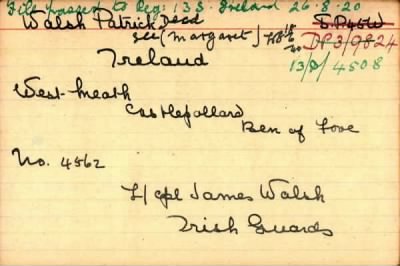 File passed to Reg: 13S. Ireland 26.8.20
Walsh Patrick Dead
D.P.45W
see (Margaret)
DP3/9824
Ireland
13/D/4508
West-meath
Castlepollard
Ben of Fore
No. 4562
L/cpl James Walsh
Irish Guards